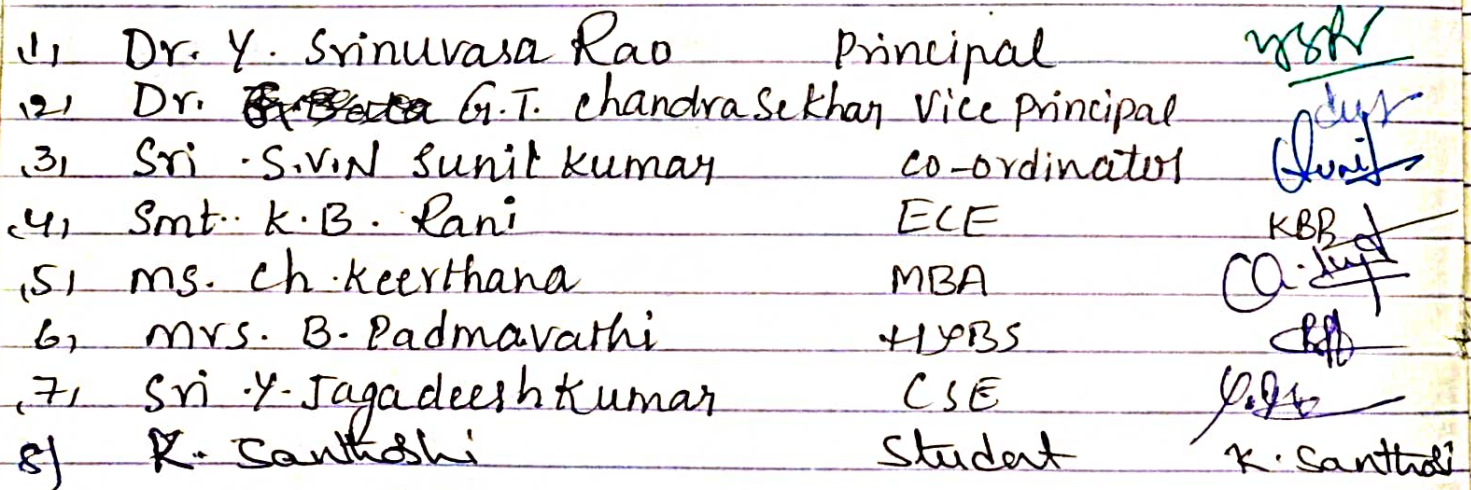 1) Dr. Y. Srinuvasa Rao Principal YSR
2) Dr. G.T. chandra Sekhar Vice principal
3) Sri .S.V.N Sunil kumar co-ordinator Sunil
4) Smt.. K.B. Rani ECE KBR
5) ms. ch.keerthana MBA
6) mrs. B. Padmavathi
7) Sri .Y.Jagadeesh Kumar CSE
8) K. Santhoshi Student K. Santhosi